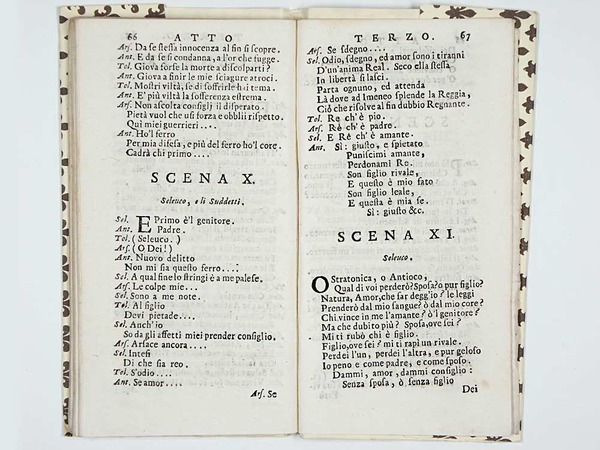 66 ATTO
Ars. Da se stessa innocenza al fin si scopre.
Ant. E da se si condanna, a l'or che fugge.
Tol. Giova forse la morte a discolparti?
Ant. Giova a finir le mie sciagure atroci.
Tol. Mostri viltà, se di soffrirle hai tema.
Ant. E' più viltà la sofferenza estrema.
Ars. Non ascolta consiglj il disperato.
Pietà vuol che usi forza e obblii rispetto.
Qui miei guerrieri....
Ant. Ho'l ferro
Per mia difesa, e più del ferro ho'l core.
Cadrà chi primo....
SCENA X.
Seleuco, e li Suddetti.
Sel. E Primo è'l genitore.
Ant. Padre.
Tol. (Seleuco.)
Ars. (O Dei!)
Ant. Nuovo delitto
Non mi sia questo ferro....
Sel. A qual fine lo stringi è a me palese.
Ars. Le colpe mie...
Sel. Sono a me note.
Tol. Al figlio
Devi pietade....
Sel. Anch'io
So da gli affetti miei prender consiglio.
Ars. Arsace ancora....
Sel. Intesi
Di che sia reo.
Tol. S'odio....
Ant. Se amor....
Ars. Se
TERZO. 67
Ars. Se sdegno....
Sel. Odio, sdegno, ed amor sono i tiranni
D'un'anima Real. Seco ella stessa
In libertà si lasci.
Parta ognuno, ed attenda
Là dove ad Imeneo splende la Reggia,
Ciò che risolve al fin dubbio Regnante.
Tol. Re ch'è pio.
Ars. Re ch'è padre.
Sel. E Rè ch'è amante.
Ant. Sì: giusto, e spietato
Puniscimi amante,
Perdonami Re.
Son figlio rivale,
E questo è mio fato
Son figlio leale,
E questa è mia fe.
Sì: giusto &c.
SCENA XI.
Seleuco.
O Stratonica, o Antioco,
Qual di voi perderò? Sposa? o pur figlio?
Natura, Amor, che far degg'io? le leggi
Prenderò dal mio sangue? ò dal mio core?
Chi vince in me l'amante? ò'l genitore?
Ma che dubito più? Sposa, ove sei?
Mi ti rubò chi è figlio.
Figlio, ove sei? mi ti rapì un rivale.
Perdei l'un, perdei l'altra, e pur geloso
Io peno e come padre, e come sposo.
Dammi, amor, dammi consiglio:
Senza sposa, ò senza figlio
Dei